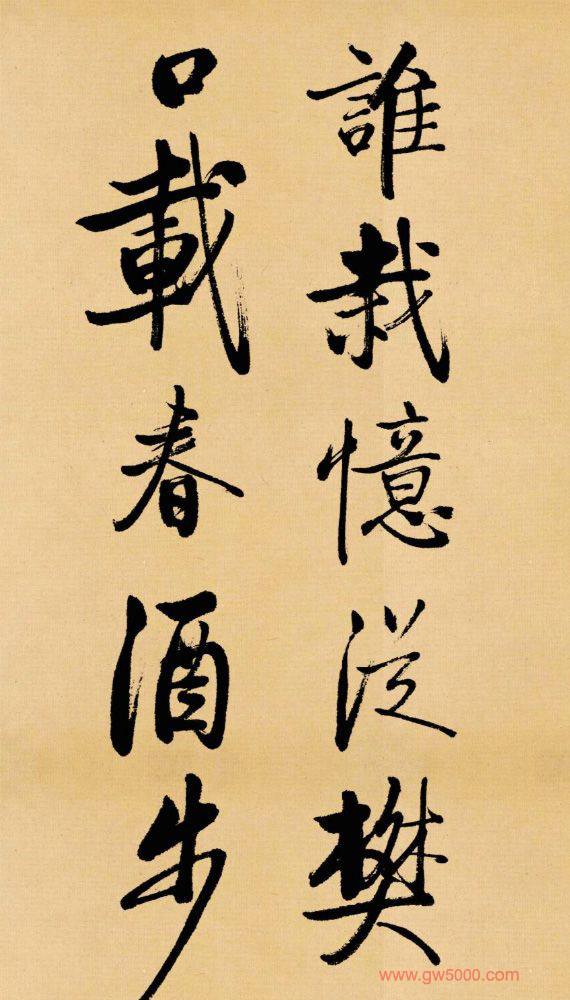 誰栽憶從樊
口載春酒步
www.gw5000.com